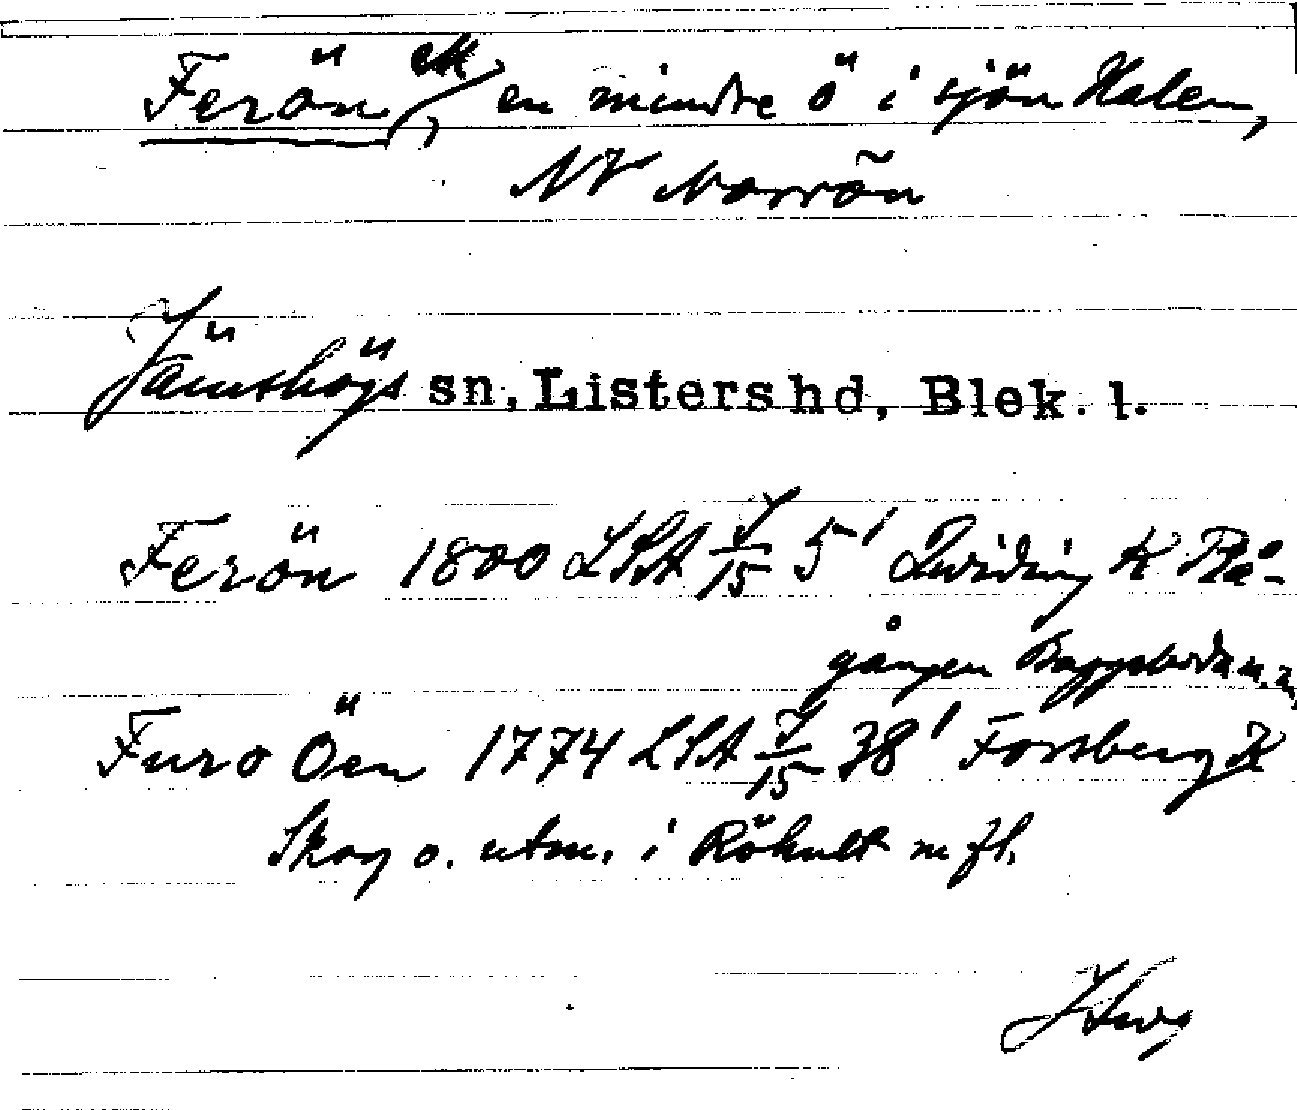 Ferön ek, en mindre ö i sjön Halen,
NV Norrön
Jämshögs sn, Listers hd, Blek. l.
Ferön 1800 LSA J/15 5¹ Qwiding K Rå-
gången Baggeboda m.m.
Furo Öen 1774 LSA J/15 38¹ Forsberg K
Skog o. utm. i Rökult m fl.